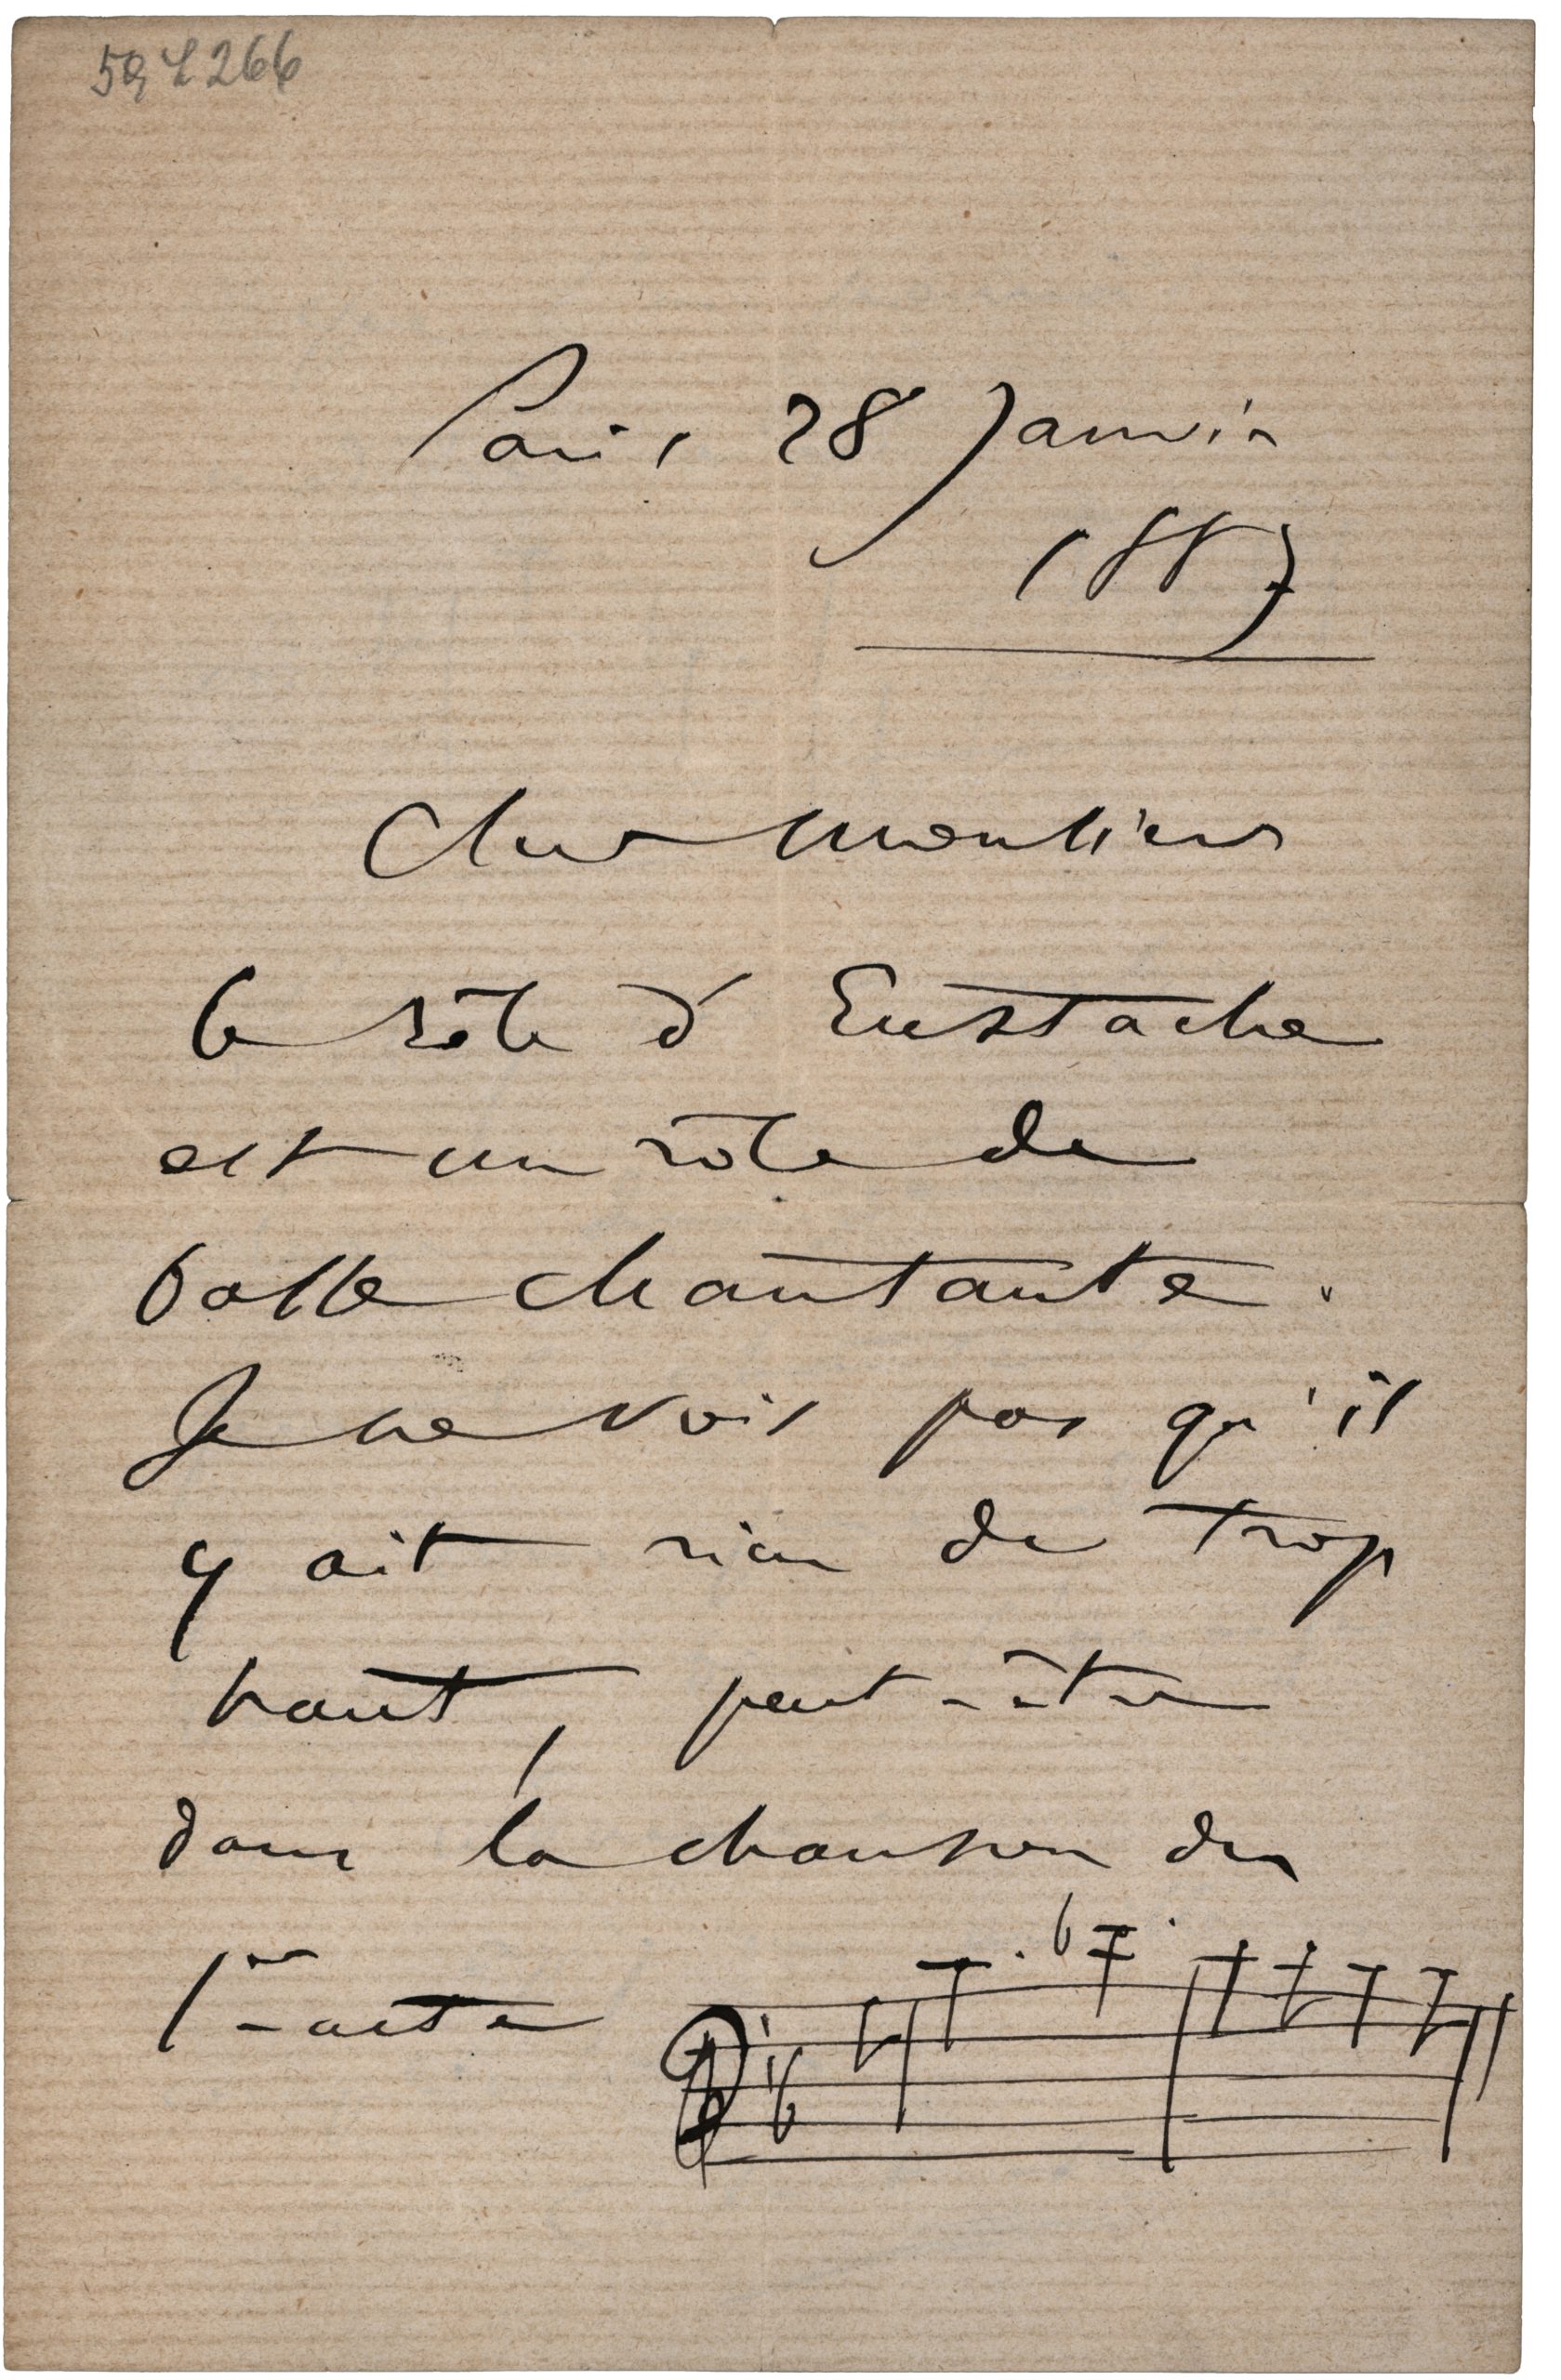 266
Paris 28 Janvier
1887
Cher monsieur
le rôle d'Eustache
est un rôle de
basse chantante.
Je ne vois pas qu'il
y ait rien de trop
haut, peut-être
dans la chanson du
1er acte